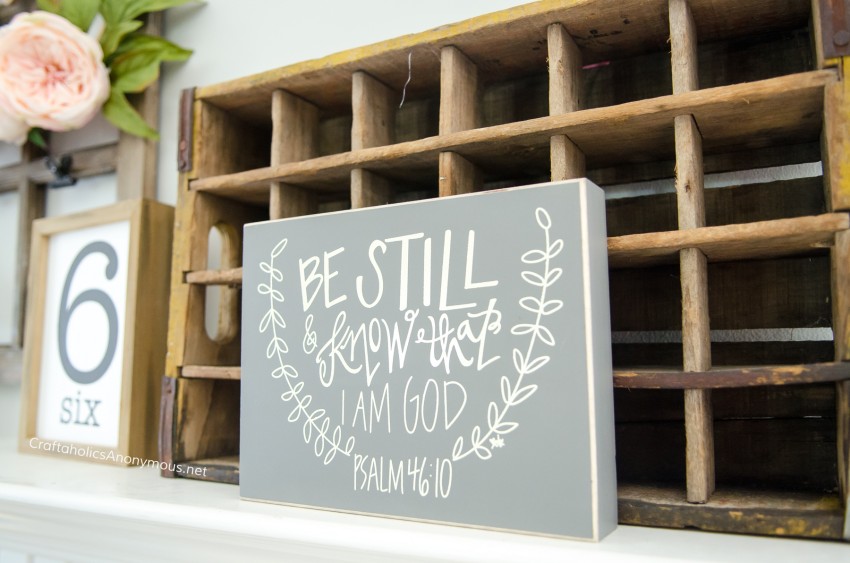 6
six
BE STILL
& know that
I AM GOD
PSALM 46:10
CraftaholicsAnonymous.net